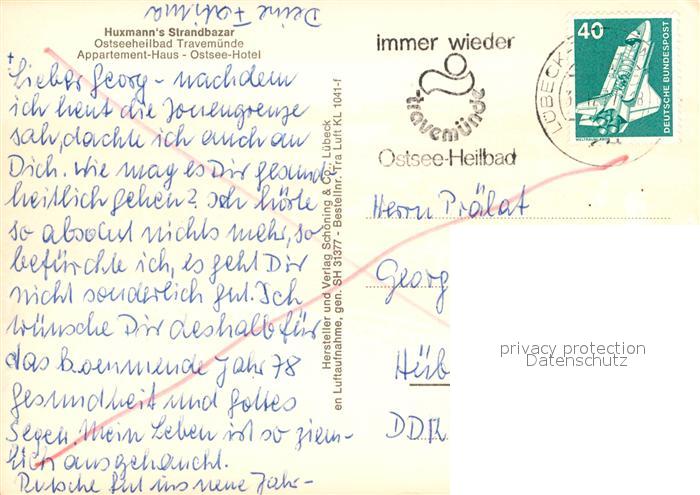 Deine Fatima
Huxmann's Strandbazar
Ostseeheilbad Travemünde
Appartement-Haus - Ostsee-Hotel
Lieber Georg - nachdem
ich heut die Zonengrenze
sah, dachte ich auch an
Dich. Wie mag es Dir gesund-
heitlich gehen? Ich hörte
so absolut nichts mehr, so
befürchte ich, es geht Dir
nicht sonderlich gut. Ich
wünsche Dir deshalb für
das kommende Jahr 78
Gesundheit und Gottes
Segen. Mein Leben ist so ziem-
lich ausgehaucht.
Rutsche gut ins neue Jahr -
Hersteller und Verlag Schöning & Co., Lübeck
en Luftaufnahme, gen. SH 31377 - Bestellnr. Tra Luft KL 1041-f
immer wieder
travemünde
Ostsee-Heilbad
LÜBECK
40
DEUTSCHE BUNDESPOST
Herrn Prälat
Georg
Hüb
DDR
privacy protection
Datenschutz